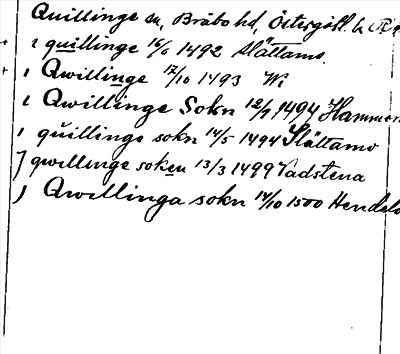 Quillinge sn, Bråbo hd, Östergötl.
i quillinge 16/6 1492 Slättamo
i Qwillinge 17/10 1493
i Qwillinge Sokn 12/7 1494 Hammar
i quillinge sokn 14/5 1494 Slättamo
J qwillinge soken 13/3 1499 Vadstena
J Qwillinga sokn 14/10 1500 Hendelö